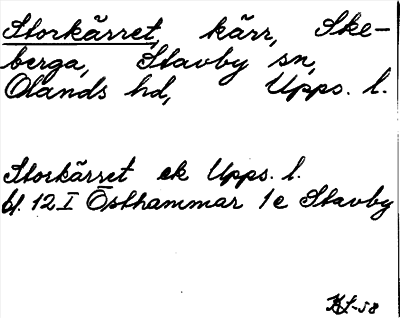 Storkärret, kärr, Ske-
berga, Stavby sn,
Olands hd, Upps. l.
Storkärret ek Upps. l.
bl. 12 I Östhammar 1e Stavby
KL-58